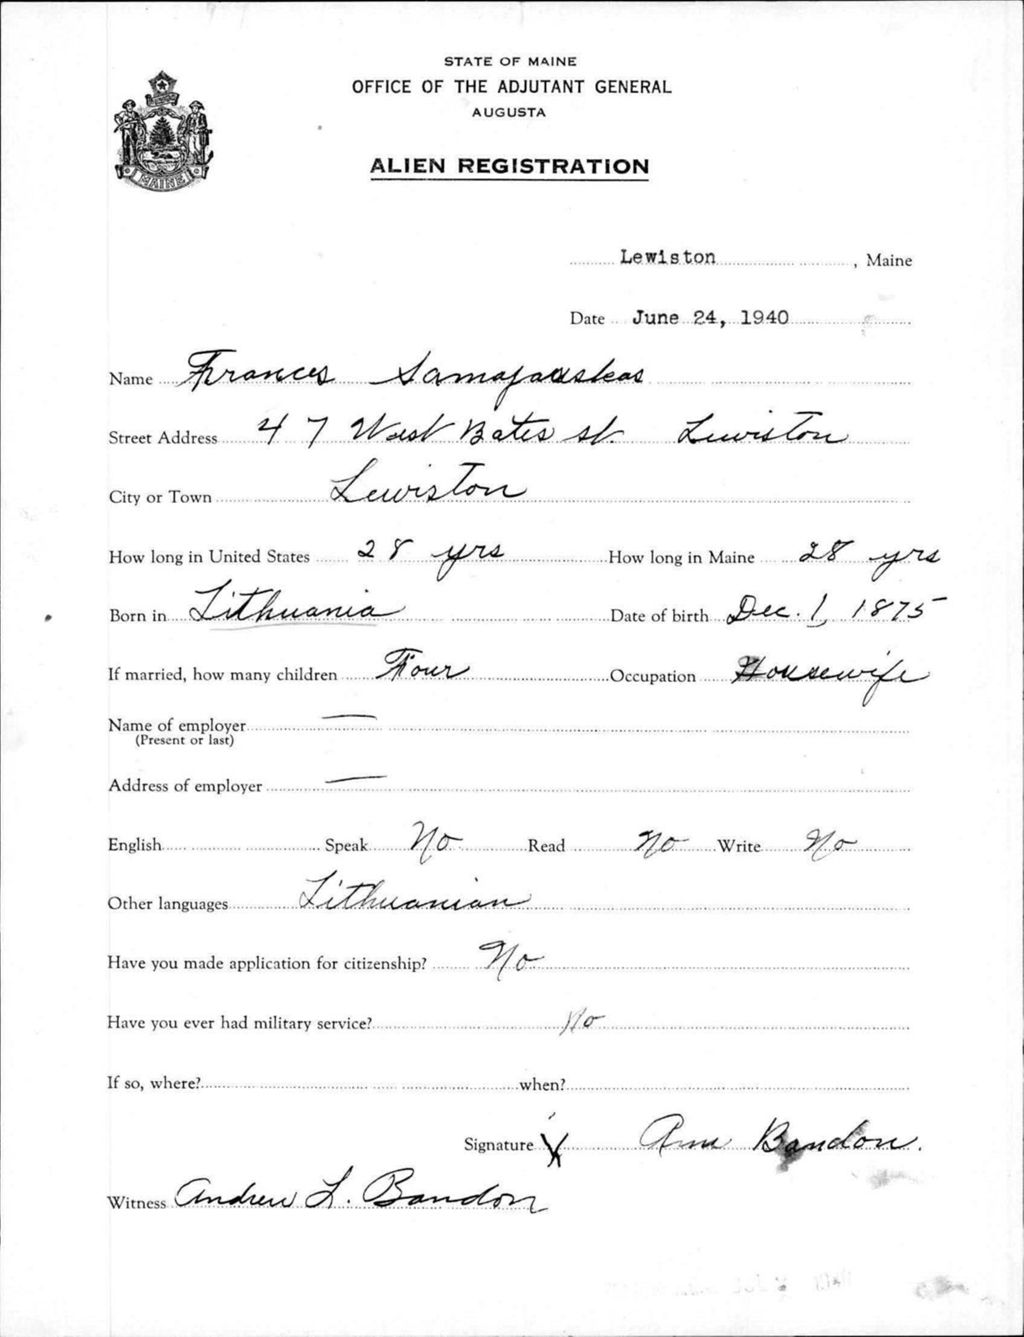 STATE OF MAINE
OFFICE OF THE ADJUTANT GENERAL
AUGUSTA
ALIEN REGISTRATION
MAINE
Lewiston, Maine
Date June 24, 1940
Name Frances Samajauskas
Street Address 47 West Bates st. Lewiston
City or Town Lewiston
How long in United States 28 yrs How long in Maine 28 yrs
Born in Lithuania Date of birth Dec. 1, 1875
If married, how many children Four Occupation Housewife
Name of employer —
(Present or last)
Address of employer —
English Speak No Read No Write No
Other languages Lithuanian
Have you made application for citizenship? No
Have you ever had military service? No
If so, where? when?
Signature X Ann Bandon.
Witness Andrew L. Bandon